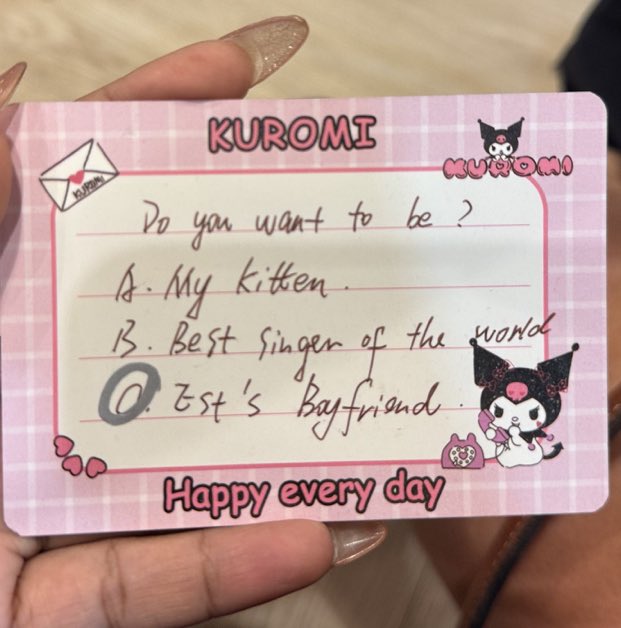 KUROMI
KUROMI
KUROMI
Do you want to be ?
A. My Kitten.
B. Best singer of the world
C. Est's Boyfriend.
Happy every day